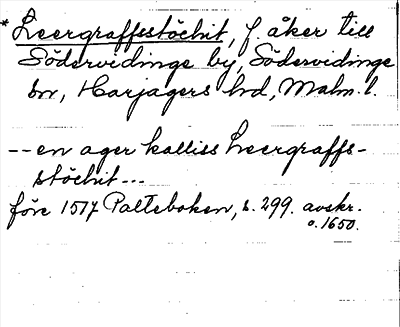 *Leergraffsstöckit, f. åker till
Södervidinge by, Södervidinge
sn, Harjagers hd, Malm. l.
-- en ager kalliss Leergraffs-
stöckit ---
före 1517 Palteboken, s. 299. avskr.
o. 1650.